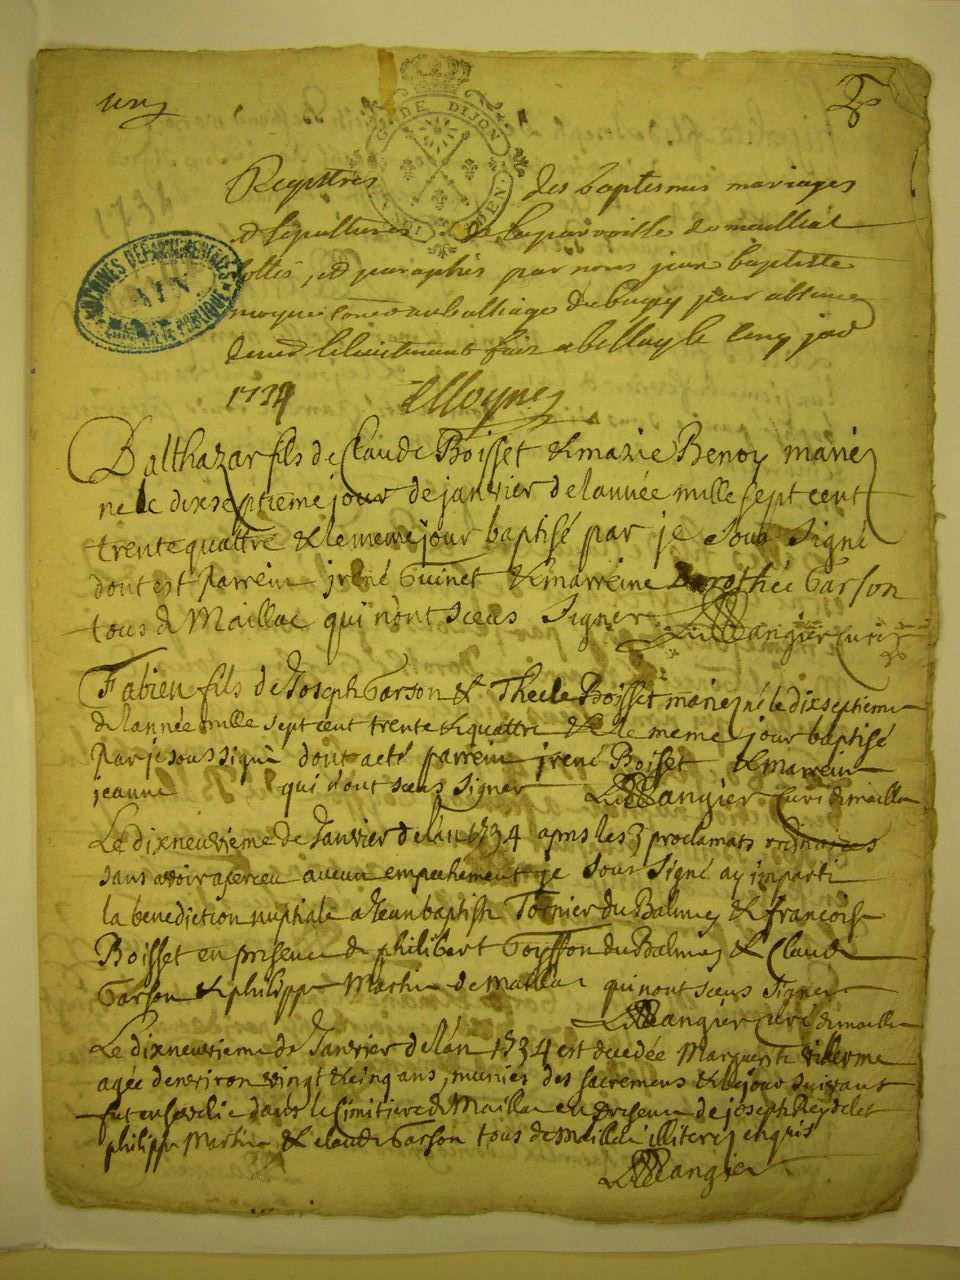 un
2
G. DE DIJON
DEN
1734
ARCHIVES DEPARTEMENTALES
AIN
PUBLIQUE
Registres des baptesmes mariages
et sepultures de la parroisse de mailliat
cottés, et paraphés par nous jean baptiste
au balliage du bugey pour absence
de lieutenant fait a belley le cinq jas
1734
Balthazar fils de Claude Boisset & marie Benoy mariez
ne le dixseptieme jour de janvier de lannée mille sept cent
trente quattre & le meme jour baptisé par je Sous Signé
dont est parrein jrené Guinet & marreine Dorothée Garson
tous de Maillac qui n'ont sceus Signer Mangier curé
Fabien fils de Joseph Garson & Thecle Boisset mariez né le dixseptieme
de lannée mille sept cent trente & quattre & le meme jour baptisé
par je sous signé dont acte parrein jrené Boisset & marrein
jeanne qui n'ont sceus signer Mangier curé de mailla
Le dixneuvieme de Janvier de l'an 1734 apres les 3 proclamats ordinaires
sans avoir aperceu aucun empechement je Sous Signé ay imparti
la benediction nuptiale a Jean baptiste Tornier du Balmey & francoise
Boisset en presence de philibert Goyffon du Balmey & Claude
Garson & philippe Martin de mallia qui nont sceus Signer
Mangier curé de mailla
Le dixneuvieme de Janvier de lán 1734 est decedée Marguerite
agée denviron vingt & cinq ans, munies des sacremens & le jour suivant
fut ensevelie dans le Cimitiere de Mailla en presence de joseph Reydelet
philippe Martin & claude Garson tous de Mailla illiterez enquis
Mangier